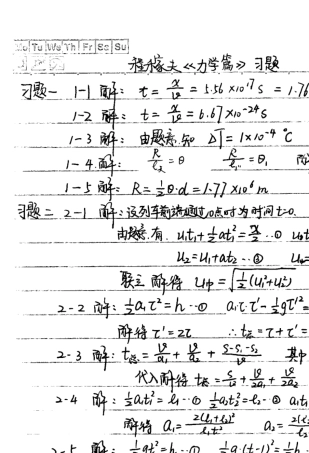 Mo Tu We Th Fr Sa Su
程稼夫《力学篇》习题
习题一 1-1 解: t = x/v = 5.56×10¹⁷ s = 1.76
1-2 解: t = x/v = 6.67×10⁻²⁴ s
1-3 解: 由题意知 ΔT = 1×10⁻⁴ ℃
1-4 解: = θ = θ₁
1-5 解: R = ½θ·d = 1.77×10⁶ m
习题二 2-1 解: 设列车前端通过,o点时为时间t=0.
由题意有. u₁t₁+½at₁²= ··①
u₂=u₁+at₂ ··②
联立解得 u中=√½(u₁²+u₂²)
2-2 解: ½a₁τ²=h ··① a₁τ·τ'-½gτ'²=
解得 τ'=2τ ∴t总=τ+τ'=
2-3 解: t总= v/a₁ + v/a₂ + (s-s₁-s₂)/v 其中
代入解得 t总= s/v + v/2a₁ + v/2a₂
2-4 解: ½a₁t₁²=l₁ ··① ½a₂t₂²=l₂ ··② a₁t₁
解得 a₁= 2(l₁+l₂)²/ a₂=
2-5 解: ½gt²=h ··① ½g(t-1)²=½h